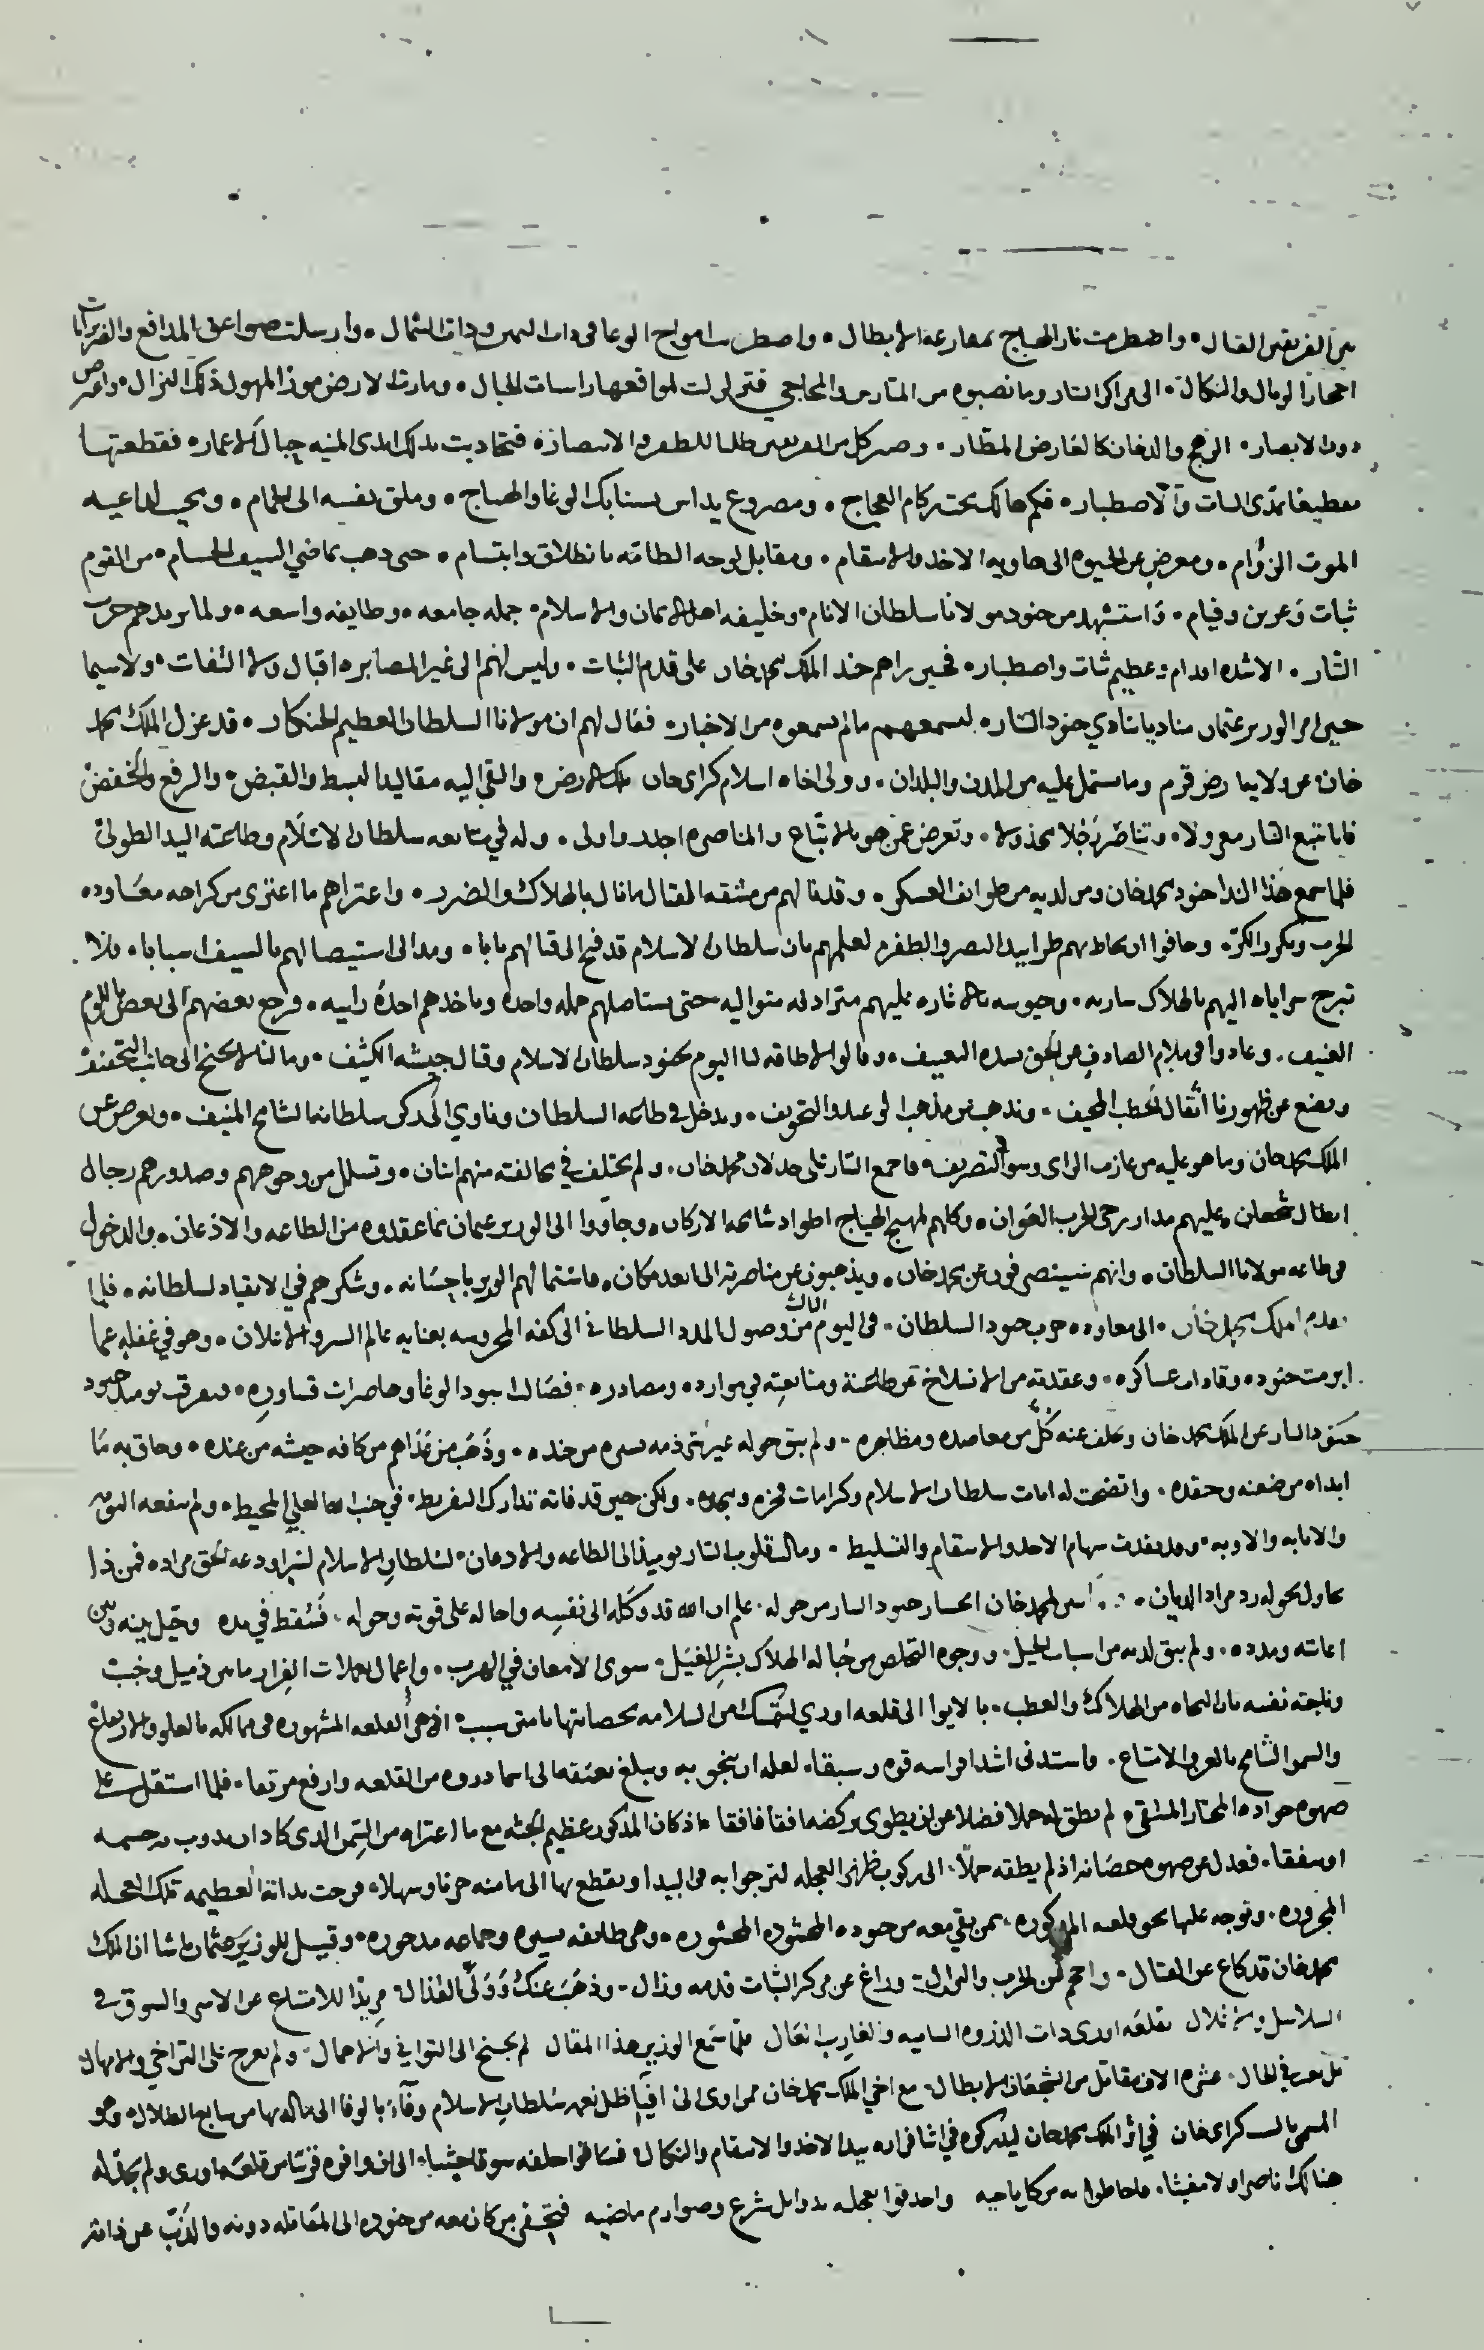 بين الفريقين القتال واضطرمت نار الهياج بمقارعة الابطال واضطربت امواج الوغا في ذات اليمين وذات الشمال وارسلت صواعق المدافع والضربزانات
احجار الوبال والنكال الى مراكز التتار وما نصبوه من المتارس والمحاجي فتزلزلت لمواقعها راسيات الجبال ومارت الارض موذ المهول ذلك النزال
دون الابصار الرهج والدخان كالعارض المطار وصبر كل من الفريقين طلبا للظفر والانتصار فتجاذبت بذلك ايدي المنيه حبال الاعمار فقطعتها
الثبات والاصطبار فكم هالك تحت ركام العجاج ومصروع يداس بسنابك الوغا والهياج وملق بنفسه الى الحمام ومجيب لداعيه
الموت الزؤام ومعرض عن الحيوة الى هاوية الاخذ والانتقام ومقابل لوجه الطاقه بانطلاق وابتسام حتى ذهب بماضي السيف الحسام من القوم
ثبات وعزين وفيام واستشهد من جنود مولانا سلطان الانام وخليفه اهل الايمان والاسلام جمله جامعه وطايفه واسعه ولما يردهم حرب
التتار الا شده اقدام وعظيم ثبات واصطبار فحين راهم جند الملك محمد خان على قدم الثبات وليس لهم الى غير المصابره اقبال ولا التفات ولا سيما
حين امر الوزير عثمان مناديا ينادي جنود التتار ليسمعهم ما لم يسمعوه من الاخبار فقال لهم ان مولانا السلطان العظيم الخنكار قد عزل الملك محمد
خان عن ولايتها رض قرم وما يشتمل عليه من المدن والبلدان وولى اخاه اسلام كراي خان ملك الارض والقى اليه مقاليد البسط والقبض والرفع والخفض
فايا تتبع التتار معزولا وتناصر رجلا مخذولا وتعرض عمن هو بالاتباع والمناصره اجدر واولى وله في متابعه سلطان الاسلام وطاعته اليد الطولى
فلما سمع هذا الندا جنود محمد خان ومن لديه من طوايف العسكر وقد نالهم من مشقه القتال ما نال بالهلاك والضرر واعتراهم ما اعترى من كراهه معاوده
الحرب وتكرر الكر وخافوا ان يحاط بهم طرا بيد النصر والظفر لعلمهم بان سلطان الاسلام قد فتح الى قتالهم بابا ومد الى استيصالهم بالسيف اسبابا فلا
تبرح سراياه اليهم بالهلاك ساريه وجيوشه عليهم مترادفه متواليه حتى يستاصلهم جمله واحدة وياخذهم اخذة رابيه فرجع بعضهم الى بعض باللوم
العنيف وعادوا في ملام الصادف عن الحق بشده التعنيف وقالوا لا طاقه لنا اليوم بجنود سلطان الاسلام وقتال جيشه الكثيف وما لنا لا نجنح الى جانب التخفيف
ونضع عن ظهورنا اثقال الخطب المخيف ونذهب من مذهب الوعيد والتخويف وندخل في طاعه السلطان وناوي الى ركن سلطانه الشامخ المنيف ونعرض عن
الملك محمد خان وما هو عليه من عازب الراي وسو التصريف فاجمع التتار على خذلان محمد خان ولم يختلف في مخالفته منهم اثنان وتسلل من وجوههم وصدورهم رجال
ابطال شجعان عليهم مدار رحى الحرب العوان وكلهم لمهيج الهياج اطواد شامخه الاركان وجاؤوا الى الوزير عثمان بما عقدوه من الطاعه والاذعان والدخول
في طاعه مولانا السلطان وانهم سينصرفون عن محمد خان ويذهبون عن مناصرته الى ابعد مكان فاستمالهم الوزير باحسانه وشكرهم في الانقياد لسلطانه فلما
تقدم الملك محمد خان الى معاوده حرب جنود السلطان في اليوم الثالث من وصول المدد السلطاني الى كفه المحروسه بعنايه عالم السر والاعلان وهو في غفله عما
ابرمت جنوده وقادات عساكره وعقدته من الانسلاخ عن طاعته ومتابعته في موارده ومصادره فصالت اسود الوغا وهاصرات قساوره وتفرقت يوميذ جنود
جنود التتار عن الملك محمد خان وتخلف عنه كل من معاضده ومظاهره ولم يبق حوله غير شرذمه يسيره من جنده وذهب من عداهم من كافه جيشه من عنده وحاق به ما
ابداه من ضغنه وحقده واتضحت له ايات سلطان الاسلام وكرامات فخره ومجده ولكن حين قد فاته تدارك التفريط في جنب الله العلي المحيط ولم تنفعه التوبه
والانابه والاوبه وقد نفذت سهام الاخذ والانتقام والتسليط ومالت قلوب التتار يوميذ الى الطاعه والاذعان لسلطان الاسلام لسر اودعه الحق مراده فمن ذا
يحاول بحوله رد مراد الديان ولما راى محمد خان انحسار جنود التتار من حوله علم ان الله قد وكله الى نفسه واحاله على قوته وحوله فسقط في يده وحيل بينه وبين
اعانته ومدده ولم يبق لديه من اسباب الحيل ووجوه التخلص من حباله الهلاك بشر الغيل سوى الامعان في الهرب واعمال يعملات الفرار ما بين ذميل وخبب
وناجته نفسه بان النجاه من الهلاك والعطب بالايوا الى قلعه اوري ليتمسك من السلامه بحصانتها بامتن سبب اذ هي القلعه المشهوره في ممالكه بالعلو والارتفاع
والسمو الشامخ بالعز والامتناع فاستدنى اشد افراسه قوه وسبقا لعله ان ينجو به ويبلغ بعنقه الى اسما ذروه من القلعه وارفع مرتقا فلما استقل على
صهوه جواده المختار المنتقى لم يطق له حملا فضلا عن ان يطوي بركضه افقا فافقا اذ كان المذكور عظيم الجثه مع ما اعتراه من السمن الذي كاد ان يذوب به جسمه
اوتتفقا فعدل عن صهوه حصانه اذ لم يطقه حملا الى ركوب ظهر العجله لتزجوا به في البيدا ويقطع بها الى مامنه حزنا وسهلا فزحت بذاته العظيمه تلك العجله
المجروره وتوجه عليها نحو قلعه المذكوره بمن بقي معه من جنوده المحشوده المحشوره وهي طايفه يسيره وجماعه مدحوره وقيل للوزير عثمان باشا ان الملك
محمد خان قد كاع عن القتال واحجم عن الحرب والنزال وزاغ عن مركز الثبات قدمه وزال وذهب عنك وولى القذال مريدا للامتناع عن الاسر والسوق في
السلاسل والاغلال بقلعه اوري ذات الذروه الساميه والغارب العال فلما سمع الوزير هذا المقال لم يجنح الى التواني والاهمال ولم يعرج على التراخي والامهال
بل بعث في الحال عشره الاف مقاتل من الشجعان الابطال مع اخي الملك محمد خان ممن اوى الى افيا ظل نعمه سلطان الاسلام وفآء بالوفا الى ماله بها من سابغ الظلال وهو
المسمى بالب كراي خان في اثر الملك محمد خان ليدركوه في اثنا فراره بيد الاخذ والانتقام والنكال فساقوا خلفه سوقا حثيثا الى ان وافوه قريبا من قلعه اوري ولم يجد له
هنالك ناصرا ولا مغيثا فاحاطوا به من كل ناحيه واحدقوا بعجله بذوابل شرع وصوارم ماضيه فتحقق من كان معه من جنوده الى المقاتله دونه والذب عن ذاته